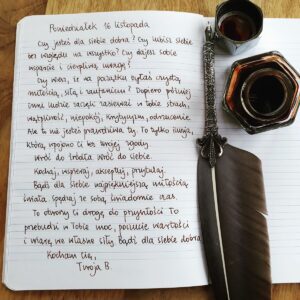 Poniedziałek 16 listopada
Czy jesteś dla siebie dobra? Czy lubisz siebie
bez względu na wszystko? Czy dajesz sobie
wsparcie i cierpliwą uwagę?
Czy wiesz, że na początku byłaś czystą
miłością, siłą i zaufaniem? Dopiero później
inni ludzie zaczęli rozsiewać w Tobie strach,
wątpliwość, niepokój, krytycyzm, odrzucenie.
Ale to nie jesteś prawdziwa ty. To tylko iluzja,
którą wpojono Ci bez twojej zgody.
Wróć do źródła wróć do siebie.
Kochaj, wspieraj, akceptuj, przytulaj.
Bądź dla siebie najpiękniejszą miłością
świata. Spędzaj ze sobą świadomie czas.
To otworzy Ci drogę do przyszłości To
przebudzi w Tobie moc, poczucie wartości
i wiarę we własne siły. Bądź dla siebie dobra.
Kocham Cię,
Twoja B.